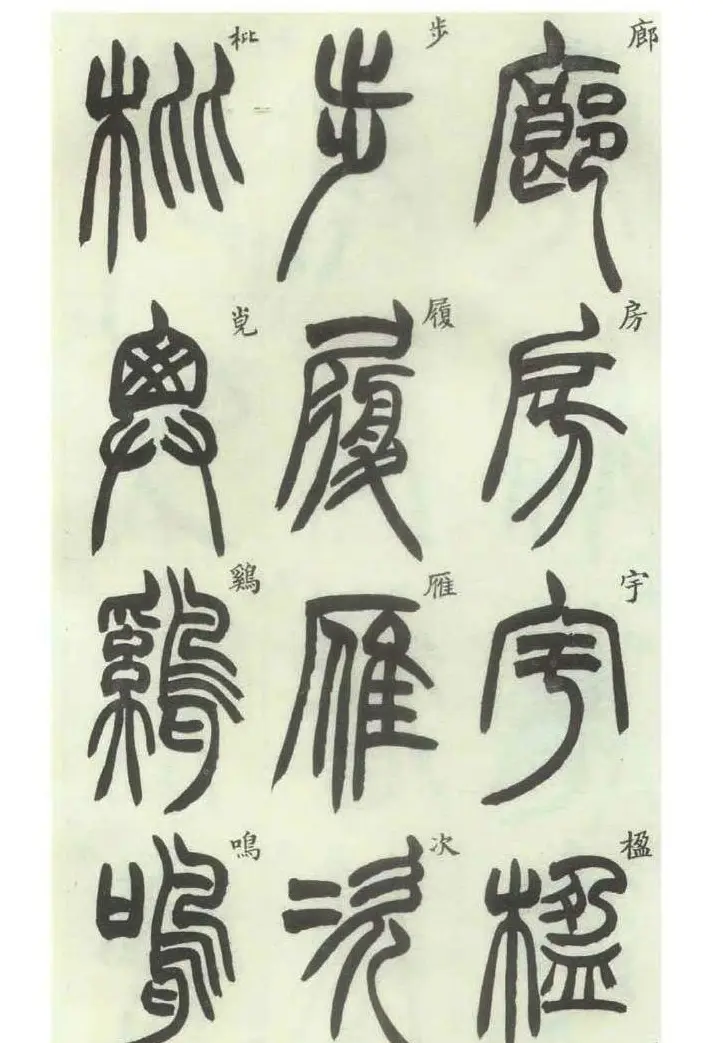 廊房宇楹
步履雁次
枇鷄鳴